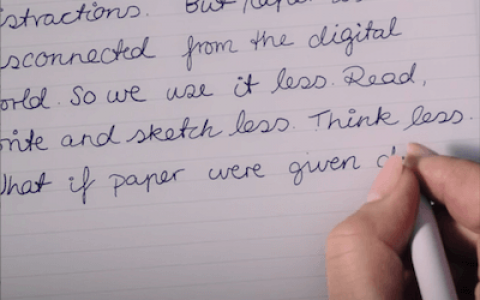 stractions. But paper
sconnected from the digital
orld. So we use it less. Read,
rite and sketch less. Think less.
What if paper were given